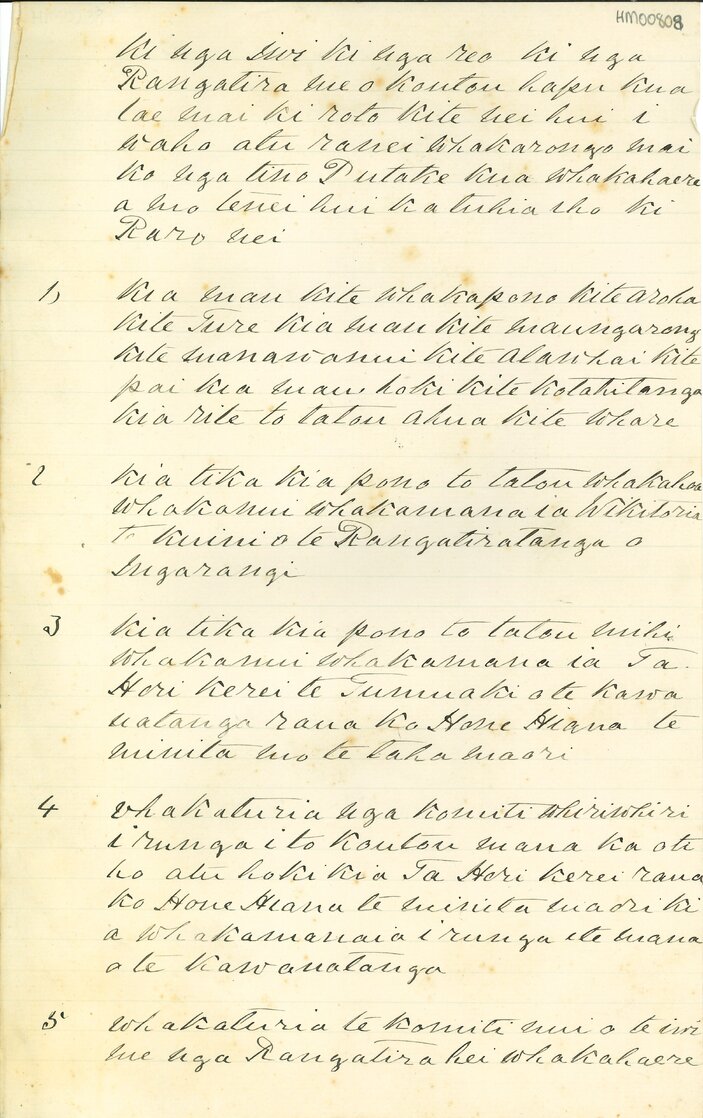 HM00808
Ki nga Iwi ki nga reo ki nga
Rangatira me o koutou hapu kua
tae mai ki roto kite nei hui i
waho atu ranei whakarongo mai
ko nga tino Putake kua whakahaere
a mo tenei hui ka tuhia iho ki
Raro nei
1, Kia mau kite whakapono kite aroha
kite Ture kia mau kite maungarong
kite manawanui kite atawhai kite
pai kia mau hoki kite kotahitanga
kia rite to tatou ahua kite whare
2 Kia tika kia pono to tatou whakahoa
whakanui whakamana ia Wikitoria
te kuini o te Rangatiratanga o
Ingarangi
3 Kia tika kia pono to tatou mihi
whakanui whakamana ia Ta
Hori kerei te Tumuaki o te kawa
natanga raua ko Hone Hiana te
minita mo te taha maori
4 whakaturia nga komiti whiriwhiri
i runga i to koutou mana ka ote
ho atu hoki kia Ta Hori kerei raua
ko Hone Hiana te minita maori ki
a whakamanaia i runga ite mana
o te kawanatanga
5 whakaturia te komiti nui o te iwi
me nga Rangatira hei whakahaere